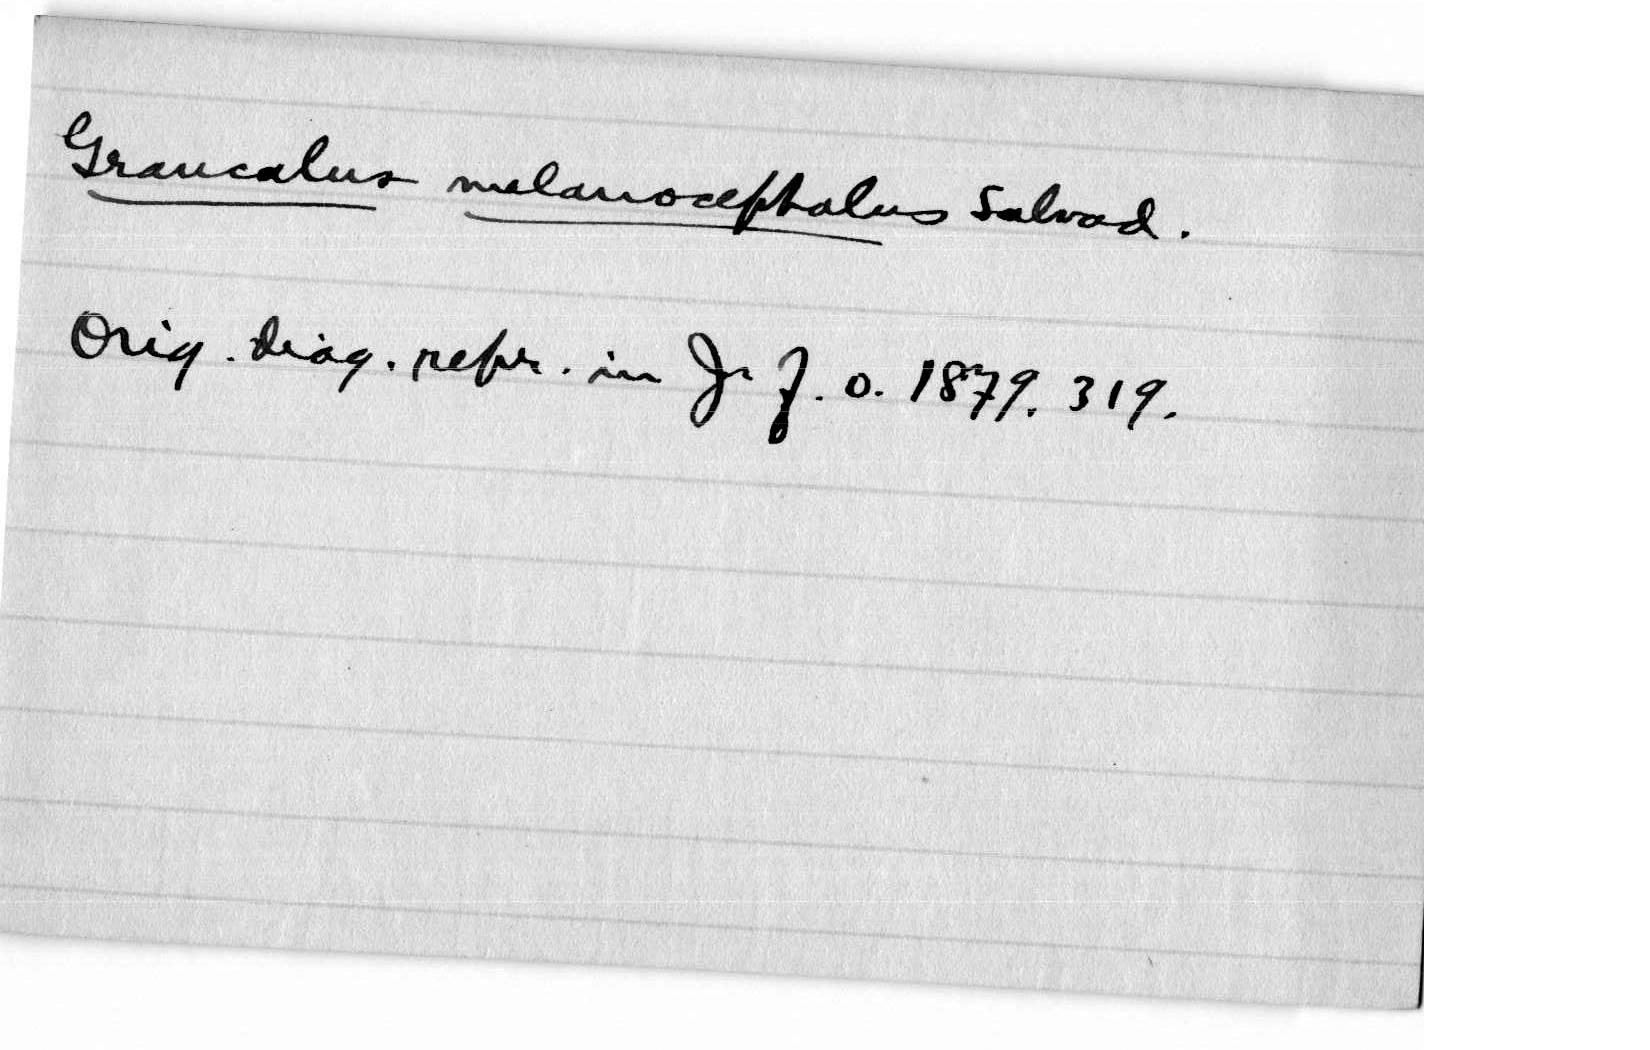 Graucalus melanocephalus Salvad.
Orig. diag. repr. in Jr f. O. 1879. 319.